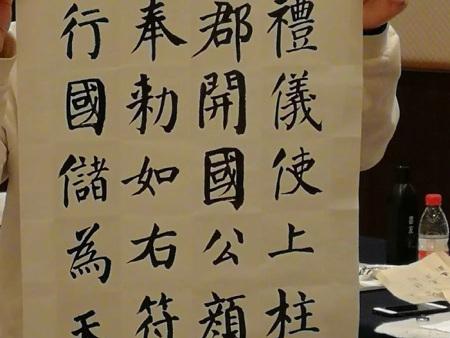 禮儀使上柱
郡開國公顏
奉勑如右符
行國儲為天